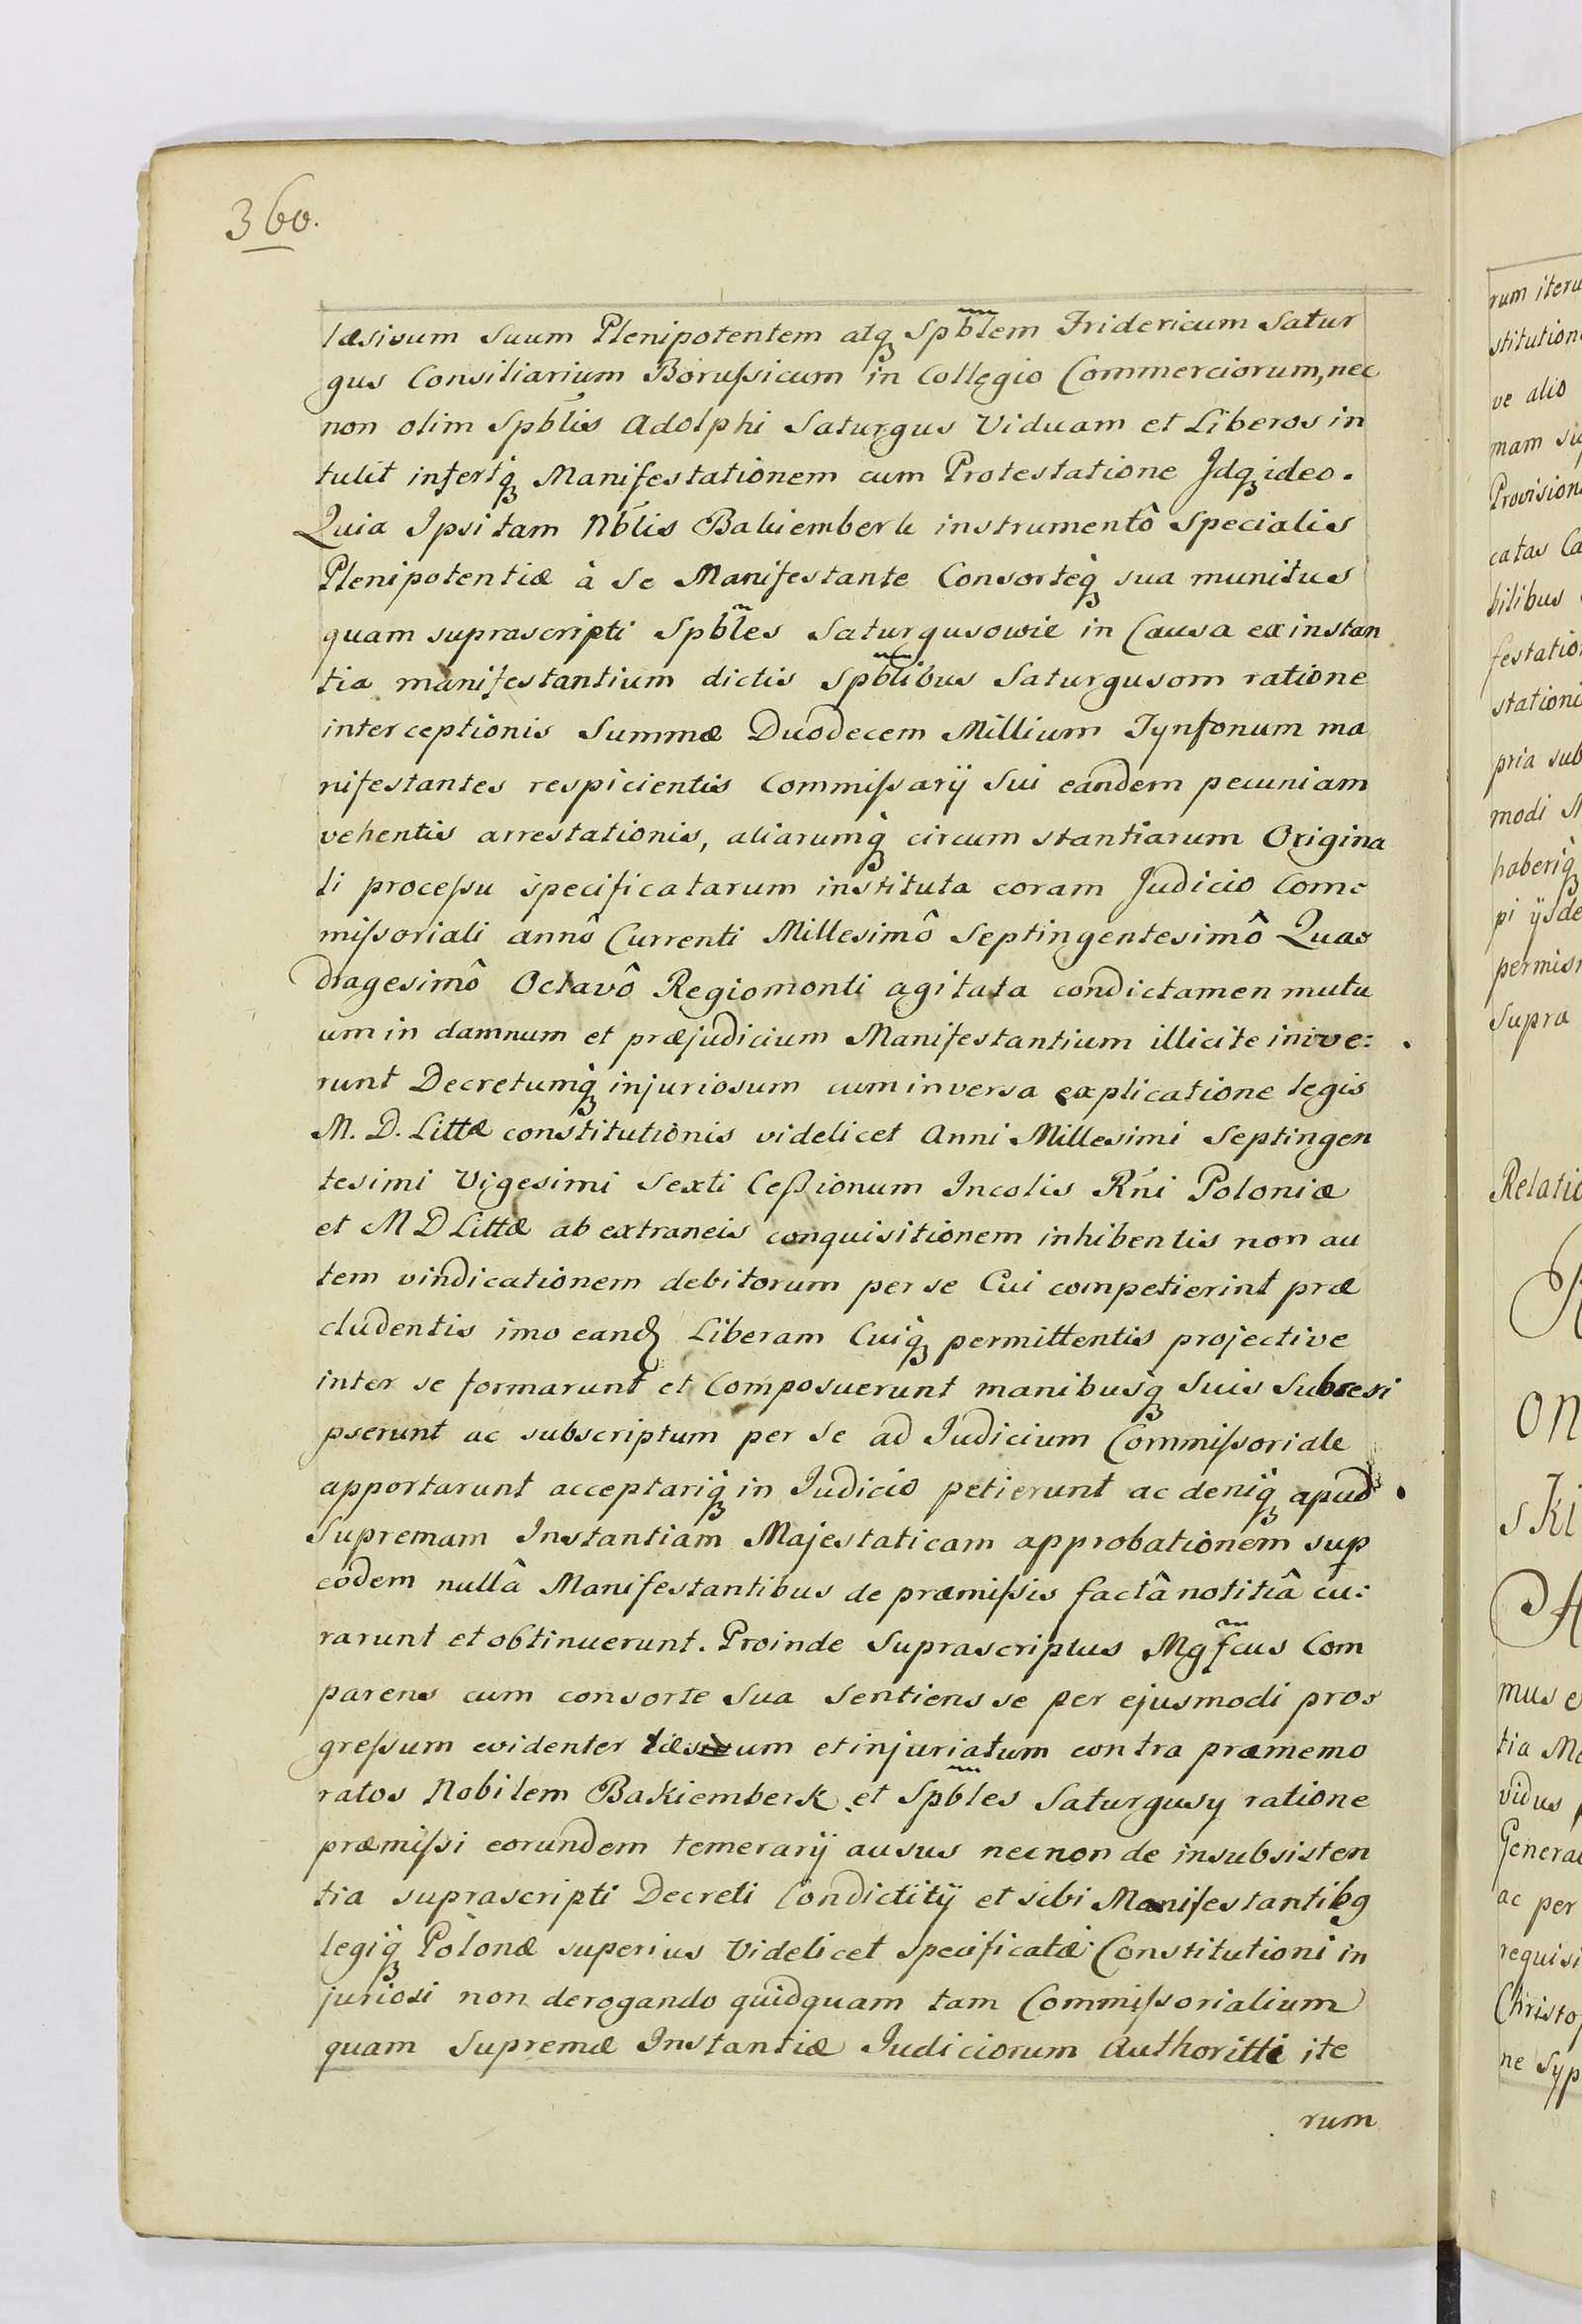 360.
læsivum suum Plenipotentem atq̃ Spb̃lem Fridericum Satur
gus Consiliarium Borussicum in Collegio Commerciorum, nec
non olim Spb̃lis Adolphi Saturgus Viduam et Liberos in
tulit infertq̃ Manifestationem cum Protestatione Jdq̃ ideo.
Quia Ipsi tam Nb̃lis Bakiemberk instrumentô Specialis
Plenipotentiæ à Se Manifestante Consorteq̃ sua munitus
quam suprascripti Spb̃les Saturgusowie in Causa ex instan
tia manifestantium dictis Spb̃libus Saturgusom ratione
interceptionis Summæ Duodecem Millium Tynfonum ma
nifestantes respicientis Commissarij Sui eandem pecuniam
vehentis arrestationis, aliarumq̃ circumstantiarum Origina
li processu specificatarum instituta coram Judicio Com=
missoriali annô Currenti Millesimô Septingentesimô Qua=
dragesimô Octavô Regiomonti agitata condictamen mutu
um in damnum et præjudicium Manifestantium illicite inive:
runt Decretumq̃ injuriosum cum inversa explicatione legis
M. D. Littæ constitutionis videlicet Anni Millesimi Septingen
tesimi Vigesimi Sexti Cessionum Incolis Rńi Poloniæ
et M D Littæ ab extraneis conquisitionem inhibentis non au
tem vindicationem debitorum per se Cui competierint præ
cludentis imo eandȝ Liberam Cuiq̃ permittentis projective
inter se formarunt et Composuerunt manibusq̃ Suis Subscri
pserunt ac subscriptum per Se ad Judicium Commissoriale
apportarunt acceptariq̃ in Judicio petierunt ac deniq̃ apud
Supremam Instantiam Majestaticam approbationem sup
eodem nullâ Manifestantibus de præmissis factâ notitiâ cu:
rarunt et obtinuerunt. Proinde Suprascriptus Mgf̃cus Com
parens cum consorte Sua Sentiens se per ejusmodi pro=
gressum evidenter læsum et injuriatum contra præmemo
ratos Nobilem Bakiemberk et Spb̃les Saturgusy ratione
præmissi eorundem temerarij ausus nec non de insubsisten
tia suprascripti Decreti Condictitij et sibi Manifestantibg
legiq̃ Polonæ superius Videlicet specificatæ Constitutioni in
juriosi non derogando quidquam tam Commissorialium
quam Supremæ Instantiæ Judiciorum Authoritti ite
rum
rum iteru
stitution
ve alio
mam su
Provision
catas Ca
bilibus
festatio
stationi
pria sub
modi M
haberiq̃
pi ijsde
permis
Supra
Relatio
on
ski
mus e
tia Ma
vidus p
Genera
ac per
requisi
Christo
ne Syp